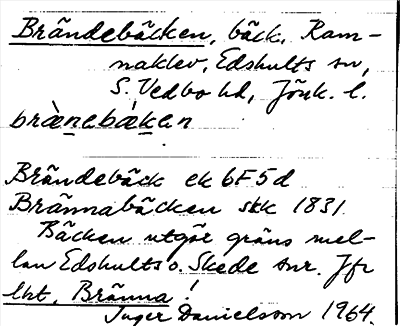 Brändebäcken, bäck, Ram-
naklev, Edshults sn,
S. Vedbo hd, Jönk. l.
brànebàken
Brändebäck ek 6F5d
Brännabäcken skk 1831
Bäcken utgör gräns mel-
lan Edshults o. Skede snr. Jfr
lht. Bränna!
Inger Danielsson 1964.